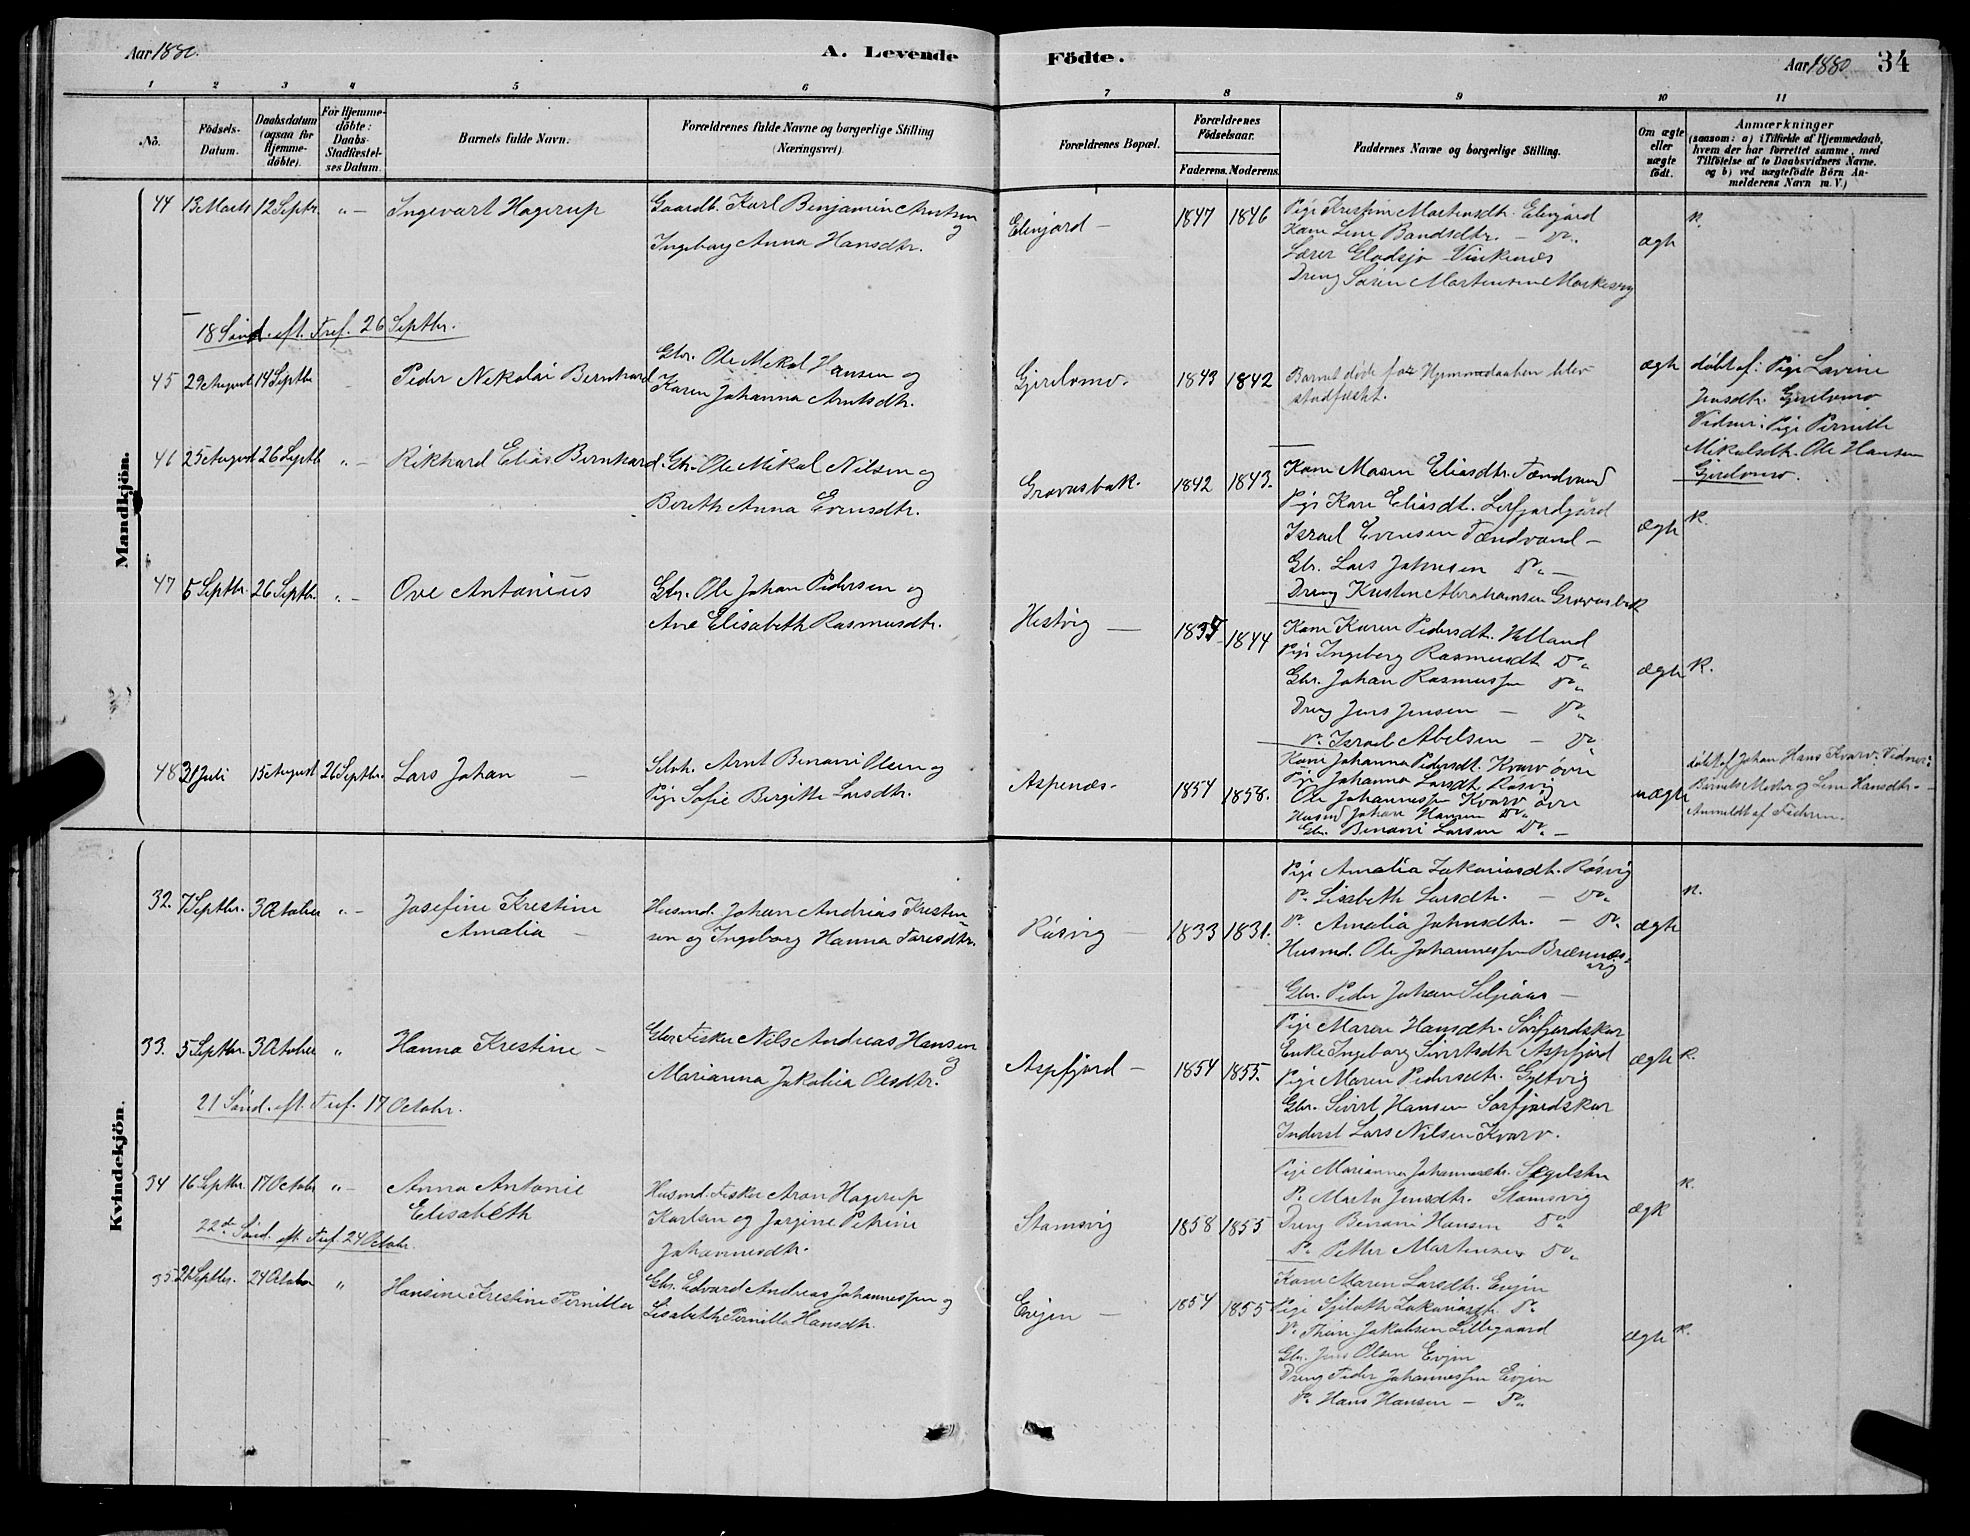 Aar 1880.
A. Levende Födte.
Aar 1880
34
1 2 3 4 5 6 7 8 9 10 11
No.
Födsels-Datum.
Daabsdatum (ogsaa for Hjemme-döbte).
For Hjemme-döbte: Daabs-Stadfæstel-ses Datum.
Barnets fulde Navn.
Forældrenes fulde Navne og borgerlige Stilling (Næringsvei).
Forældrenes Bopæl.
Forældrenes Födselsaar.
Faderens. Moderens.
Faddernes Navne og borgerlige Stilling.
Om ægte eller uægte født.
Anmærkninger
(saasom: a) i Tilfælde af Hjemmedaab,
hvem der har forrettet samme, med
Tilföielse af to Daabsvidners Navne.
og b) ved uægtefödte Börn An-
melderens Navn m. V.)
Mandkjön.
44 13 Marts 12 Septbr. " — Ingevart Hagerup
Gaardb. Karl Benjamin Arntsen og
Ingeborg Anna Hansdtr.
Elvjord — 1847 1846
Pige Krestine Martinsdtr. Elvjord
Kone Lene Bandsdtr. — Do.
Lærer Glodsjø Vinkenes
Dreng Søren Martensen Markesvig
ægte
n.
18 Sønd. eft. Tref. 26 Septbr.
45 29 August 14 Septbr Peder Nikolai Bernhard
Gbr. Ole Mikal Hansen og
Karen Johanna Arntsdtr.
Gjerdomo. 1843 1842
Barnet døde før Hjemmedaaben blev
stadfæstet.
ægte
døbt af: Pige Lavine
Jensdtr. Gjerdomo
Vidner: Pige Pernille
Mikalsdtr. Ole Hansen
Gjerdomo.
46 25 August 26 Septbr " — Rikhard Elias Bernhard.
Gbr. Ole Mikal Nilsen og
Bereth Anna Evensdtr.
Grovasbak. 1842 1843.
Kone Maren Eliasdtr. Tændvand
Pige Kare Eliasdt. Leifjordgård
Israel Evensen Tændvand —
Gbr. Lars Johnsen Do. —
Dreng Kristen Abrahamsen Grovasbak
ægte
n.
47 5 Septbr. 26 Septbr. " — Ove Antonius
Gbr. Ole Johan Pedersen og
Ane Elisabeth Rasmusdtr.
Hestvig — 1837 1844
Kone Karen Pedersdt. Valland
Pige Ingeborg Rasmusdt. Do.
Gbr. Johan Rasmussen Do.
Dreng Jens Jensen — Do.
Do. Israel Abelsen — Do.
ægte
n.
48 31 Juli 15 August 26 Septbr. Lars Johan —
Selvh. Arnt Benoni Olsen og
Pige Sofie Birgitte Larsdtr.
Aspenæs. 1854 1858.
Kone Johanna Pedersdt. Kvarv øvre
Pige Johanna Larsdt. Røsvig
Ole Johannessen Kvarv øvre
Husmd Johan Hansen Do.
Gbr. Benoni Larsen Do. —
uægte
døbt af Johan Hans. Kvarv. Vidner:
Barnets Moder og Lene Hansdtr. —
Anmeldt af Fadren.
Kvindekjön.
32. 7 Septbr. 3 October " — Josefine Krestine
Amalia —
Husmd. Johan Andreas Kristen-
sen og Ingeborg Hanna Toresdtr.
Røsvig — 1833 1831.
Pige Amalia Zakariasdt. Røsvig
Do. Lisabeth Larsdtr. — Do.
Do. Amalia Johnsdtr. — Do.
Husmd. Ole Johannessen Brænnæs-
vig
Gbr. Peder Johan Seljåas —
ægte
n.
33. 5 Septbr. 3 October " Hanna Krestine —
Gbr. Fisker Nils Andreas Hansen og
Marianna Jakobia Olsdtr.
Aspfjord — 1854 1855.
Pige Maren Hansdtr. Sørfjordskar
Enke Ingeborg Sivertsdtr Aspfjord
Pige Maren Pedersdtr. Gyltvig
Gbr. Sivert Hansen Sørfjordskar
Inderst Lars Nilsen Kvarv.
ægte
n.
21 Sønd. eft. Tref. 17 Octobr.
34 16 Septbr. 17 Octobr " — Anna Antonie
Elisabeth
Husmd. Fisker Aron Hagerup
Karlsen og Jørgine Petrine
Johannesdtr.
Stamsvig 1858 1855
Pige Marianna Johannesdtr. Søgelsten
P. Marta Jensdtr. Stamsvig
Dreng Benoni Hansen Do.
Do. Petter Martensen Do.
ægte
n.
22de Sønd. eft. Tref. 24 Octobr.
35. 21 Septbr. 24 October " Hansine Krestine Pernilla
Gbr. Edvard Andreas Johannessen og
Lisabeth Pernilla Hansdtr.
Evjen — 1854 1855
Kone Maren Larsdtr. Evjen
Pige Zakariasdtr. Do.
Do. Thrine Jakobsen Lillegaard
Gbr. Jens Olsen Evjen
Dreng Peder Johannessen Evjen
Do. Hans Hansen — Do.
ægte
n.